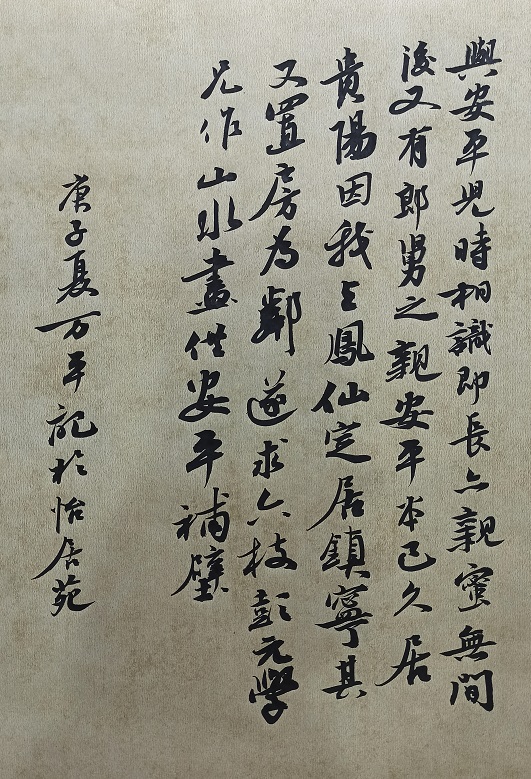 與安平児時相識即長亦親蜜無間
後又有郎舅之親安平本已久居
貴陽因我与鳳仙定居鎮寧其
又置房為鄰遂求六枝彭元學
兄作山水畫供安平補壁
庚子夏万平記於怡居苑